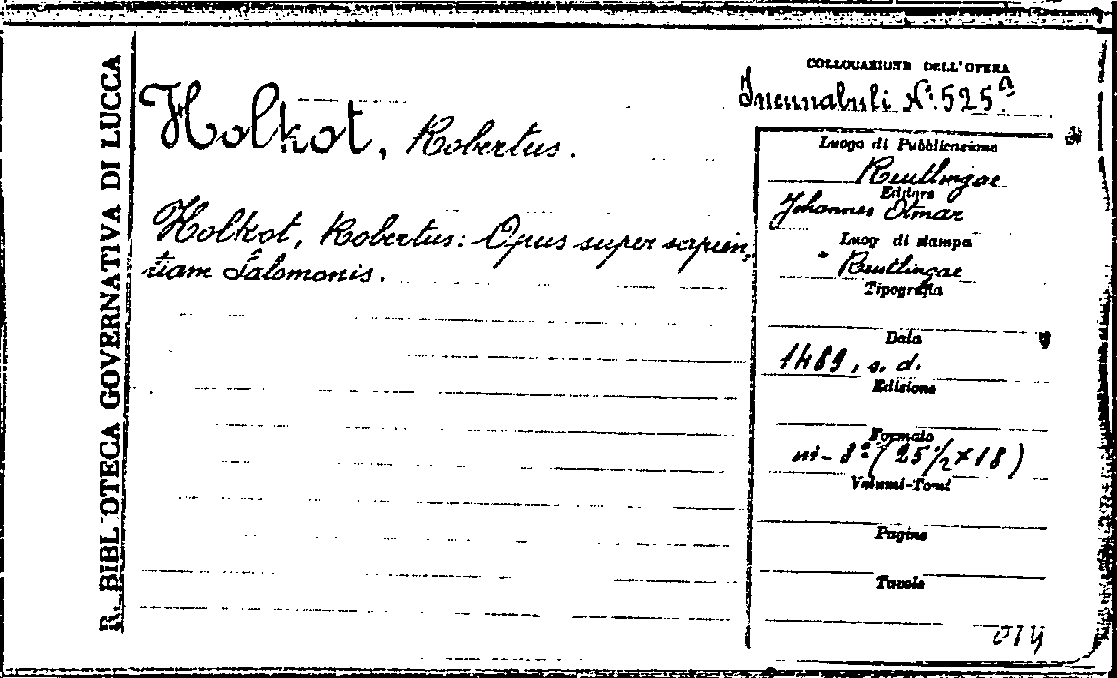 R. BIBLIOTECA GOVERNATIVA DI LUCCA
Holkot, Robertus.
Holkot, Robertus: Opus super sapien,
tiam Salomonis.
COLLOCAZIONE DELL'OPERA
Incunabuli N.º 525ª
Luogo di Pubblicazione
Reutlingae
Editore
Johannes Otmar
Luog di stampa
Reutlingae
Tipografia
Data
1489, s. d.
Edizione
Formato
in-8º (25 1/2 × 18)
Volumi-Tomi
Pagine
Tavole